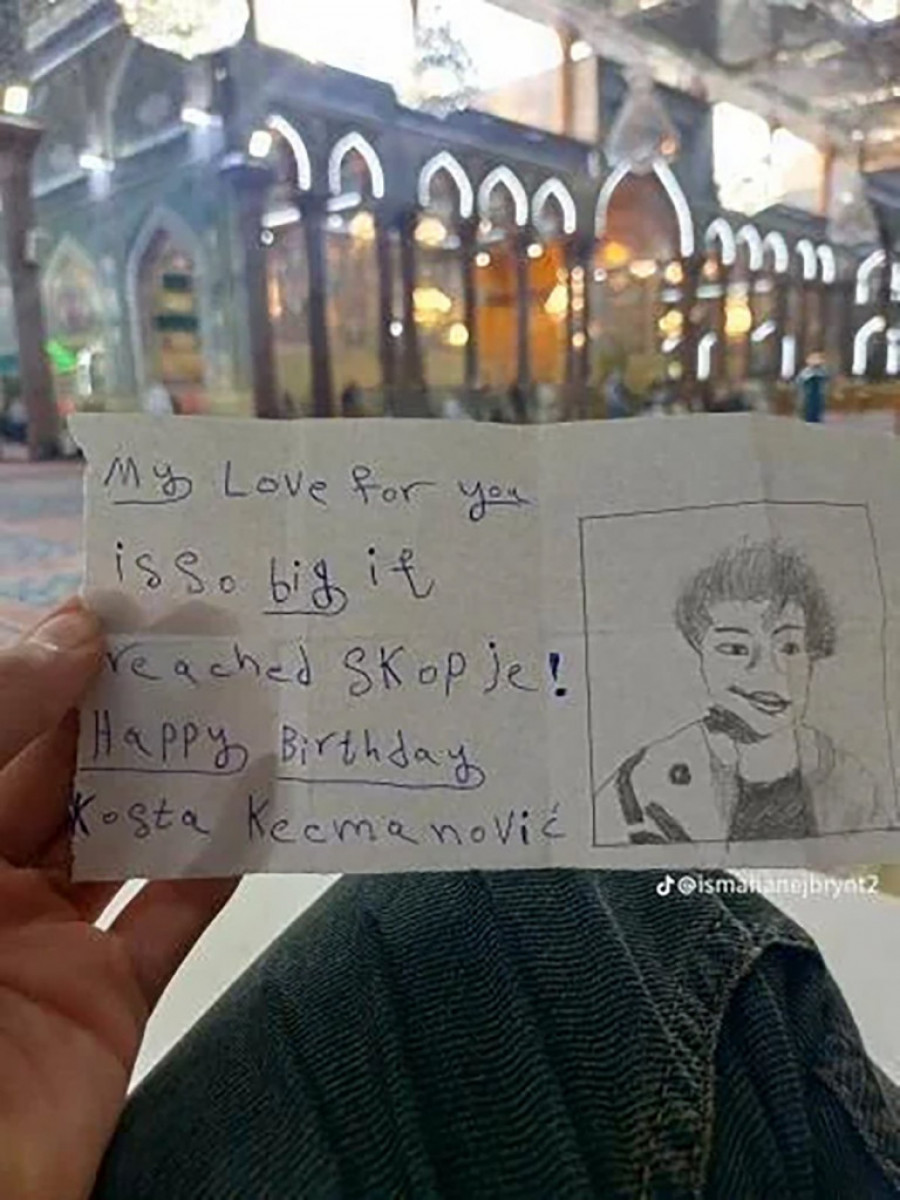 My Love for you
is so big it
reached Skopje!
Happy Birthday
Kosta Kecmanović
@ismailanejbrynt2